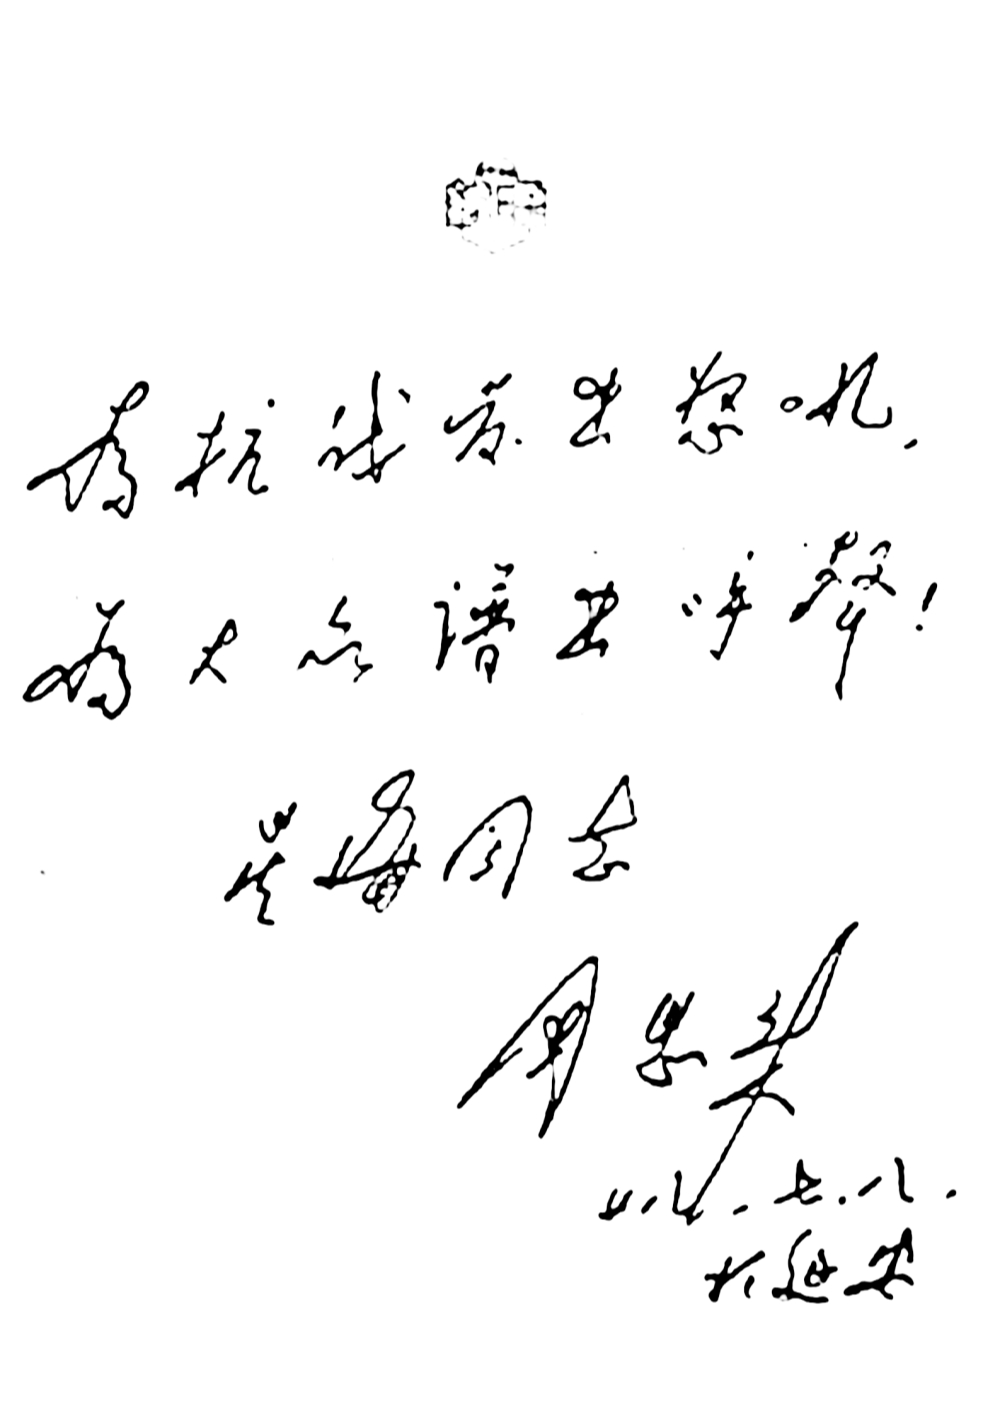 为抗战发出怒吼,
为大众谱出呼声!
星海同志
周恩来
廿八.七.八.
于延安